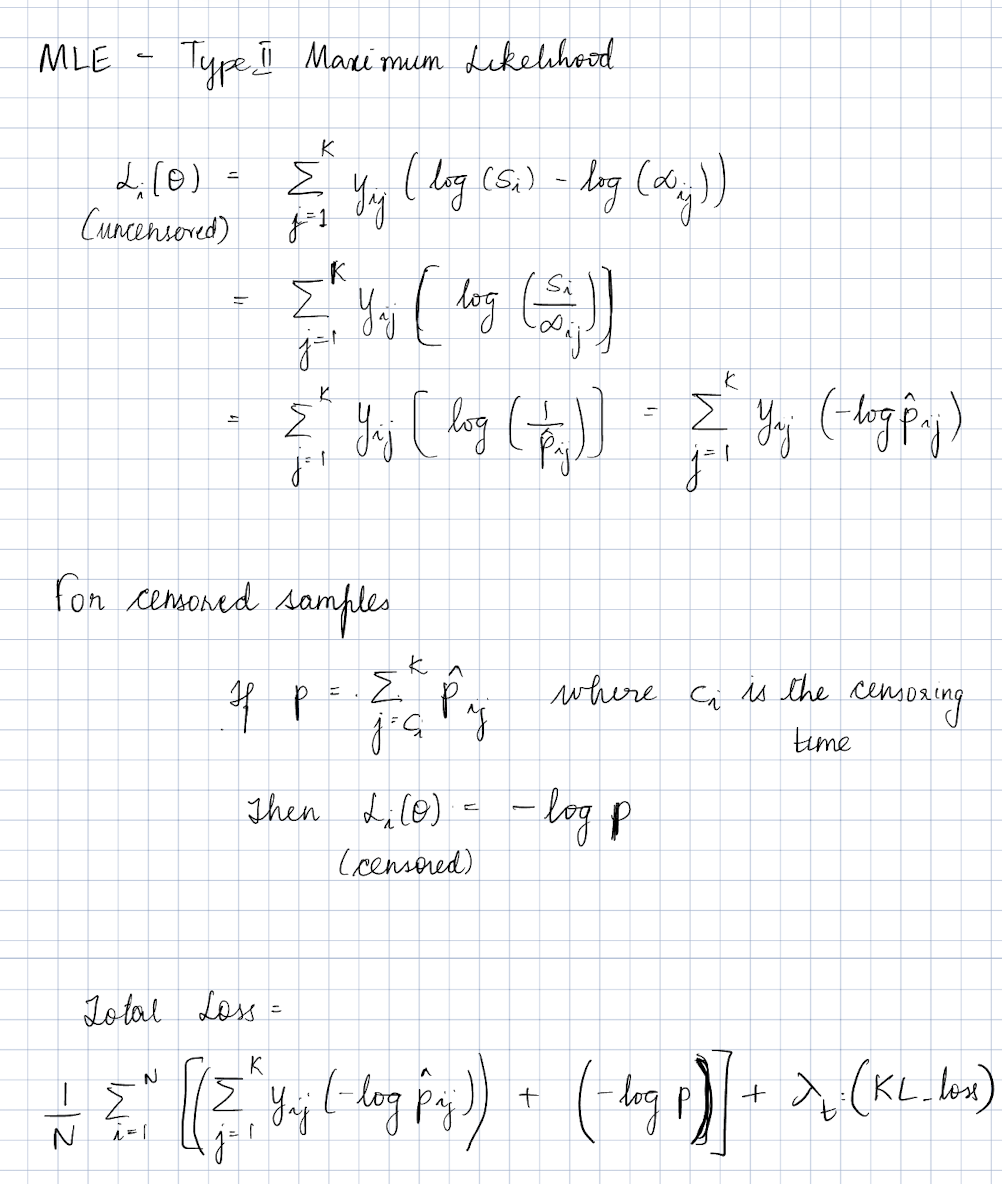 MLE - Type II Maximum Likelihood
L_i(θ) = ∑_{j=1}^{K} y_ij ( log (S_i) - log (α_ij))
(uncensored)
= ∑_{j=1}^{K} y_ij [ log (S_i / α_ij) ]
= ∑_{j=1}^{K} y_ij [ log (1 / p̂_ij) ] = ∑_{j=1}^{K} y_ij (-log p̂_ij)
For censored samples
If p = ∑_{j=C_i}^{K} p̂_ij where C_i is the censoring
time
Then L_i(θ) = -log p
(censored)
Total Loss =
1/N ∑_{i=1}^{N} [ (∑_{j=1}^{K} y_ij (-log p̂_ij)) + (-log p) ] + λ_t · (KL_loss)